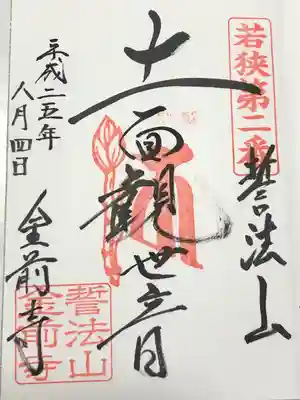 若狭第二番
誓法山
十一面觀世音
平成二五年
八月四日
金前寺
誓法山
金前寺